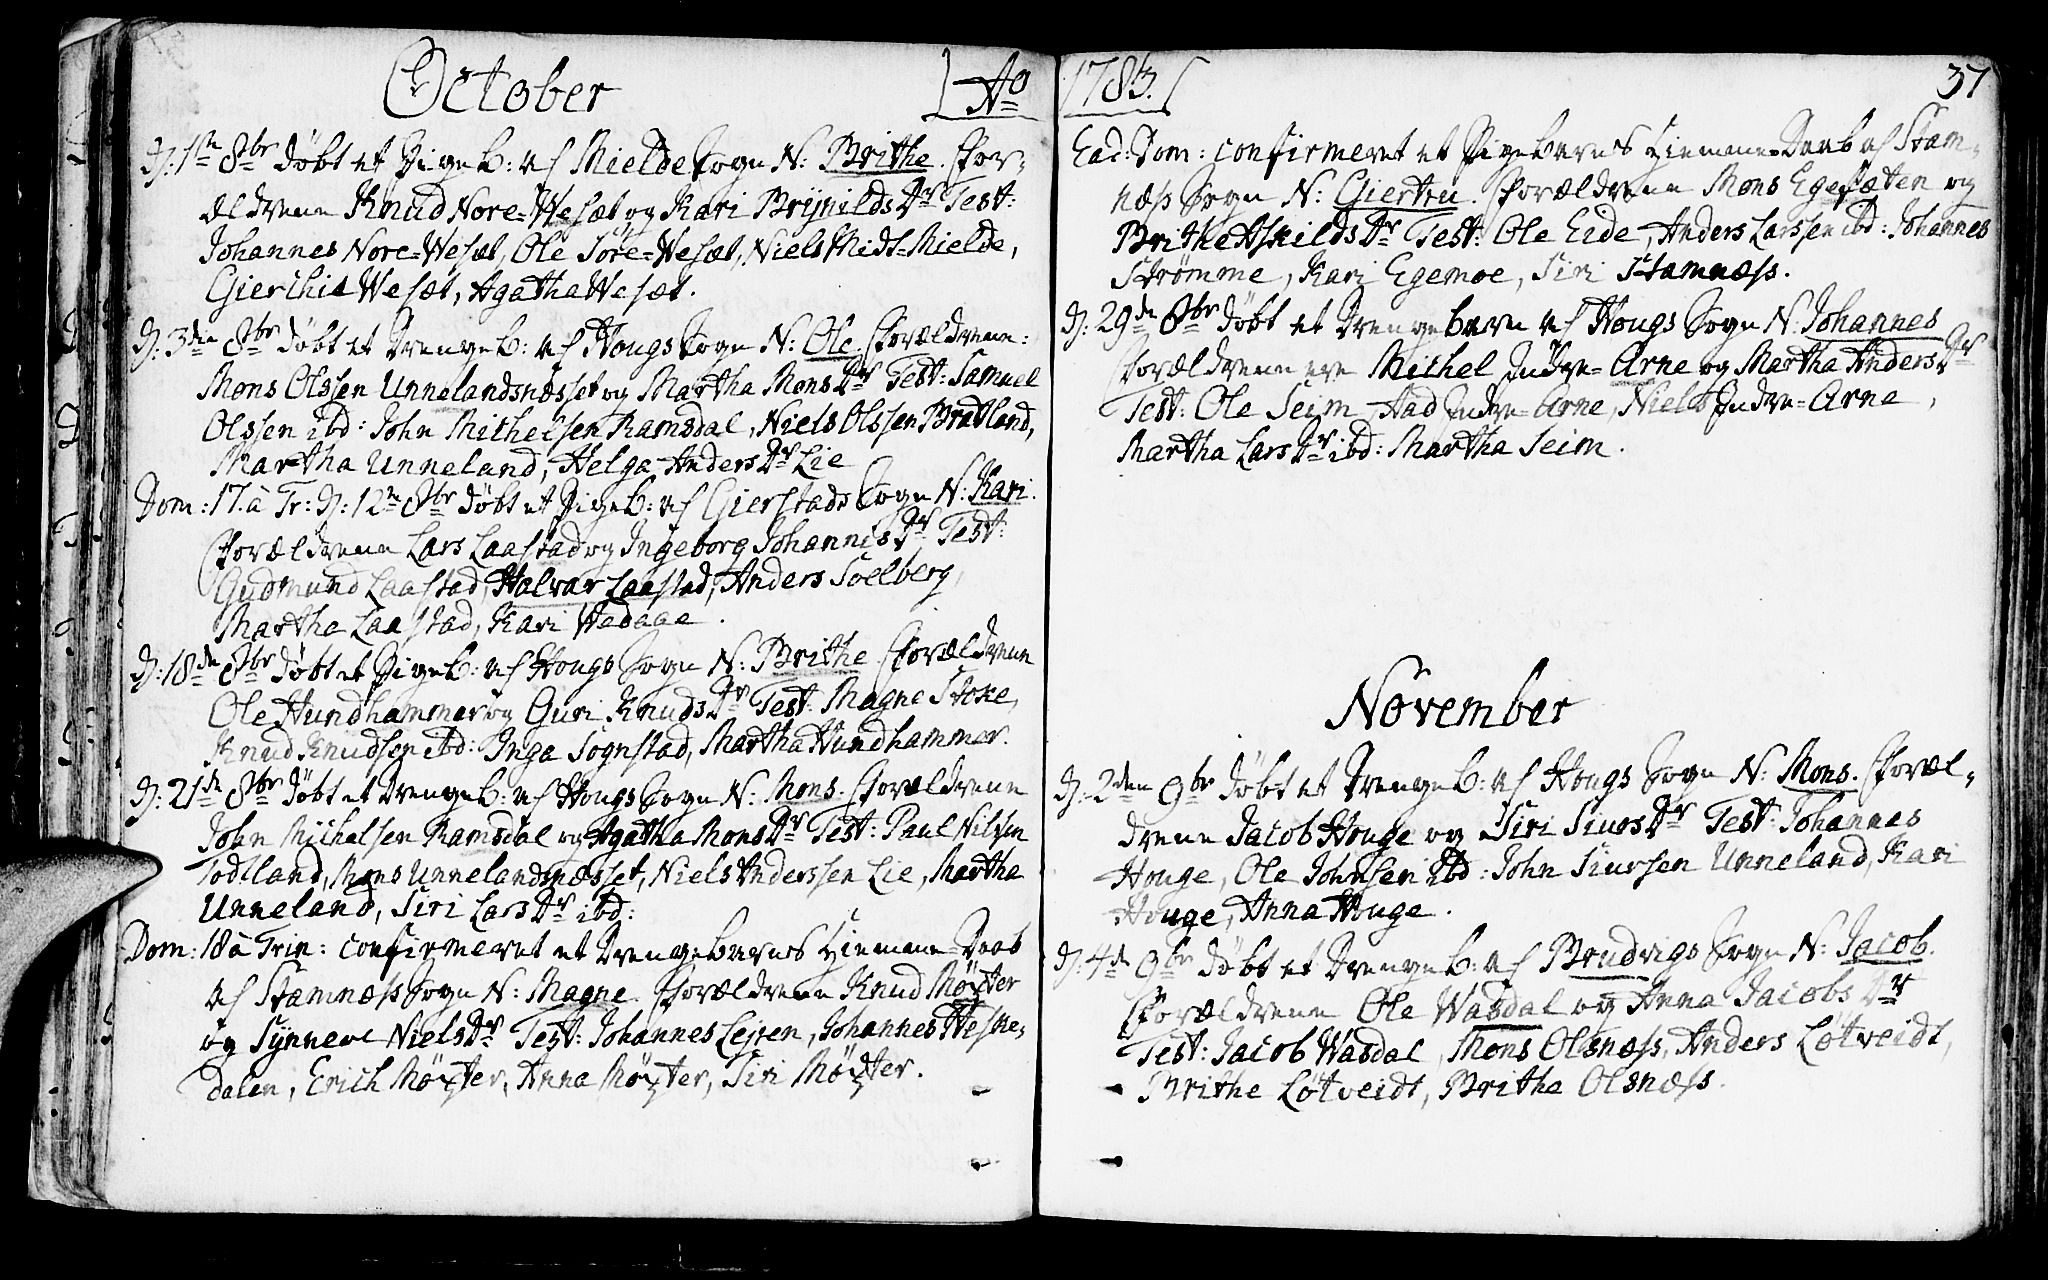 October Ao
D: 1ste 8br døbt et Pigeb: af Mielde Sogn N: Brithe. For-
ældrene Knud Nore-Wesæt og Kari Brÿnilds Dr Test:
Johannes Nore-Wesæt, Ole Søre-Wesæt, Niels Midt-Mielde,
Gierthie Wesæt, Agatha Wesæt.
D: 3die 8br døbt et Drengeb: af Hougs Sogn N: Ole. Forældrene:
Mons Olssen Unnelandsnæsset og Martha Mons Dr Test: Samuel
Olssen ibd: John Michelsen Ramsdal, Niels Olssen Bratland,
Martha Unneland, Helga Anders Dr Lie
Dom: 17. à Tr: D: 12te 8br døbt et Pigeb: af Gierstads Sogn N: Kari.
Forældrene Lars Laastad og Ingeborg Johannis Dr Test:
Gudmund Laastad, Halvar Laastad, Anders Solberg,
Martha Laastad, Kari Wedaae.
D: 18de 8br døbt et Pigeb: af Hougs Sogn N: Brithe Forældrene
Ole Hundhammer og Guri Knuds Dr Test: Magne Stoke,
Knud Knudsen ibd: Inga Sognstad, Martha Hundhammer.
D: 21de 8br døbt et Drengeb: af Hougs Sogn N: Mons. Forældrene
John Michelsen Ramsdal og Agatha Mons Dr Test: Paul Nilsen
Todtland, Mons Unnelandsnæsset, Niels Anderssen Lie, Martha
Unneland, Siri Lars Dr ibd:
Dom: 18 à Trin: confirmeret et Drengebarns Hiemme-Daab
af Stamnæss Sogn N: Magne. Forældrene Knud Møxter
og Synneve Niels Dr Test: Johannes Lejren, Johannes Heske-
dalen, Erich Møxter, Anna Møxter, Siri Møxter.
1783. 37
Ead: Dom: confirmeret et Pigebarns Hiemme-Daab af Stam-
næss Sogn N: Giertru. Forældrene Mons Egesæten og
Brithe Askilds Dr Test: Ole Eide, Anders Larssen ibd: Johannes
Strømme, Kari Egemoe, Siri Stamnæss.
D: 29de 8br døbt et Drengebarn af Hougs Sogn N: Johannes
Forældrene ere Michel Indre-Arne og Martha Anders Dr
Test: Ole Seim, Aad Indre-Arne, Niels Indre-Arne,
Martha Lars Dr ibd: Martha Seim.
November
D: 2den 9br døbt et Drengeb: af Hougs Sogn N: Mons. Foræl-
drene Jacob Houge og Siri Siurs Dr Test: Johannes
Houge, Ole Johnsen ibd: John Siursen Unneland, Kari
Houge, Anna Houge.
D: 4de 9br døbt et Drengeb: af Brudvigs Sogn N: Jacob.
Forældrene Ole Wasdal og Anna Jacobs Dr
Test: Jacob Wasdal, Mons Olsnæss, Anders Løtveidt,
Brithe Løtveidt, Brithe Olsnæss.